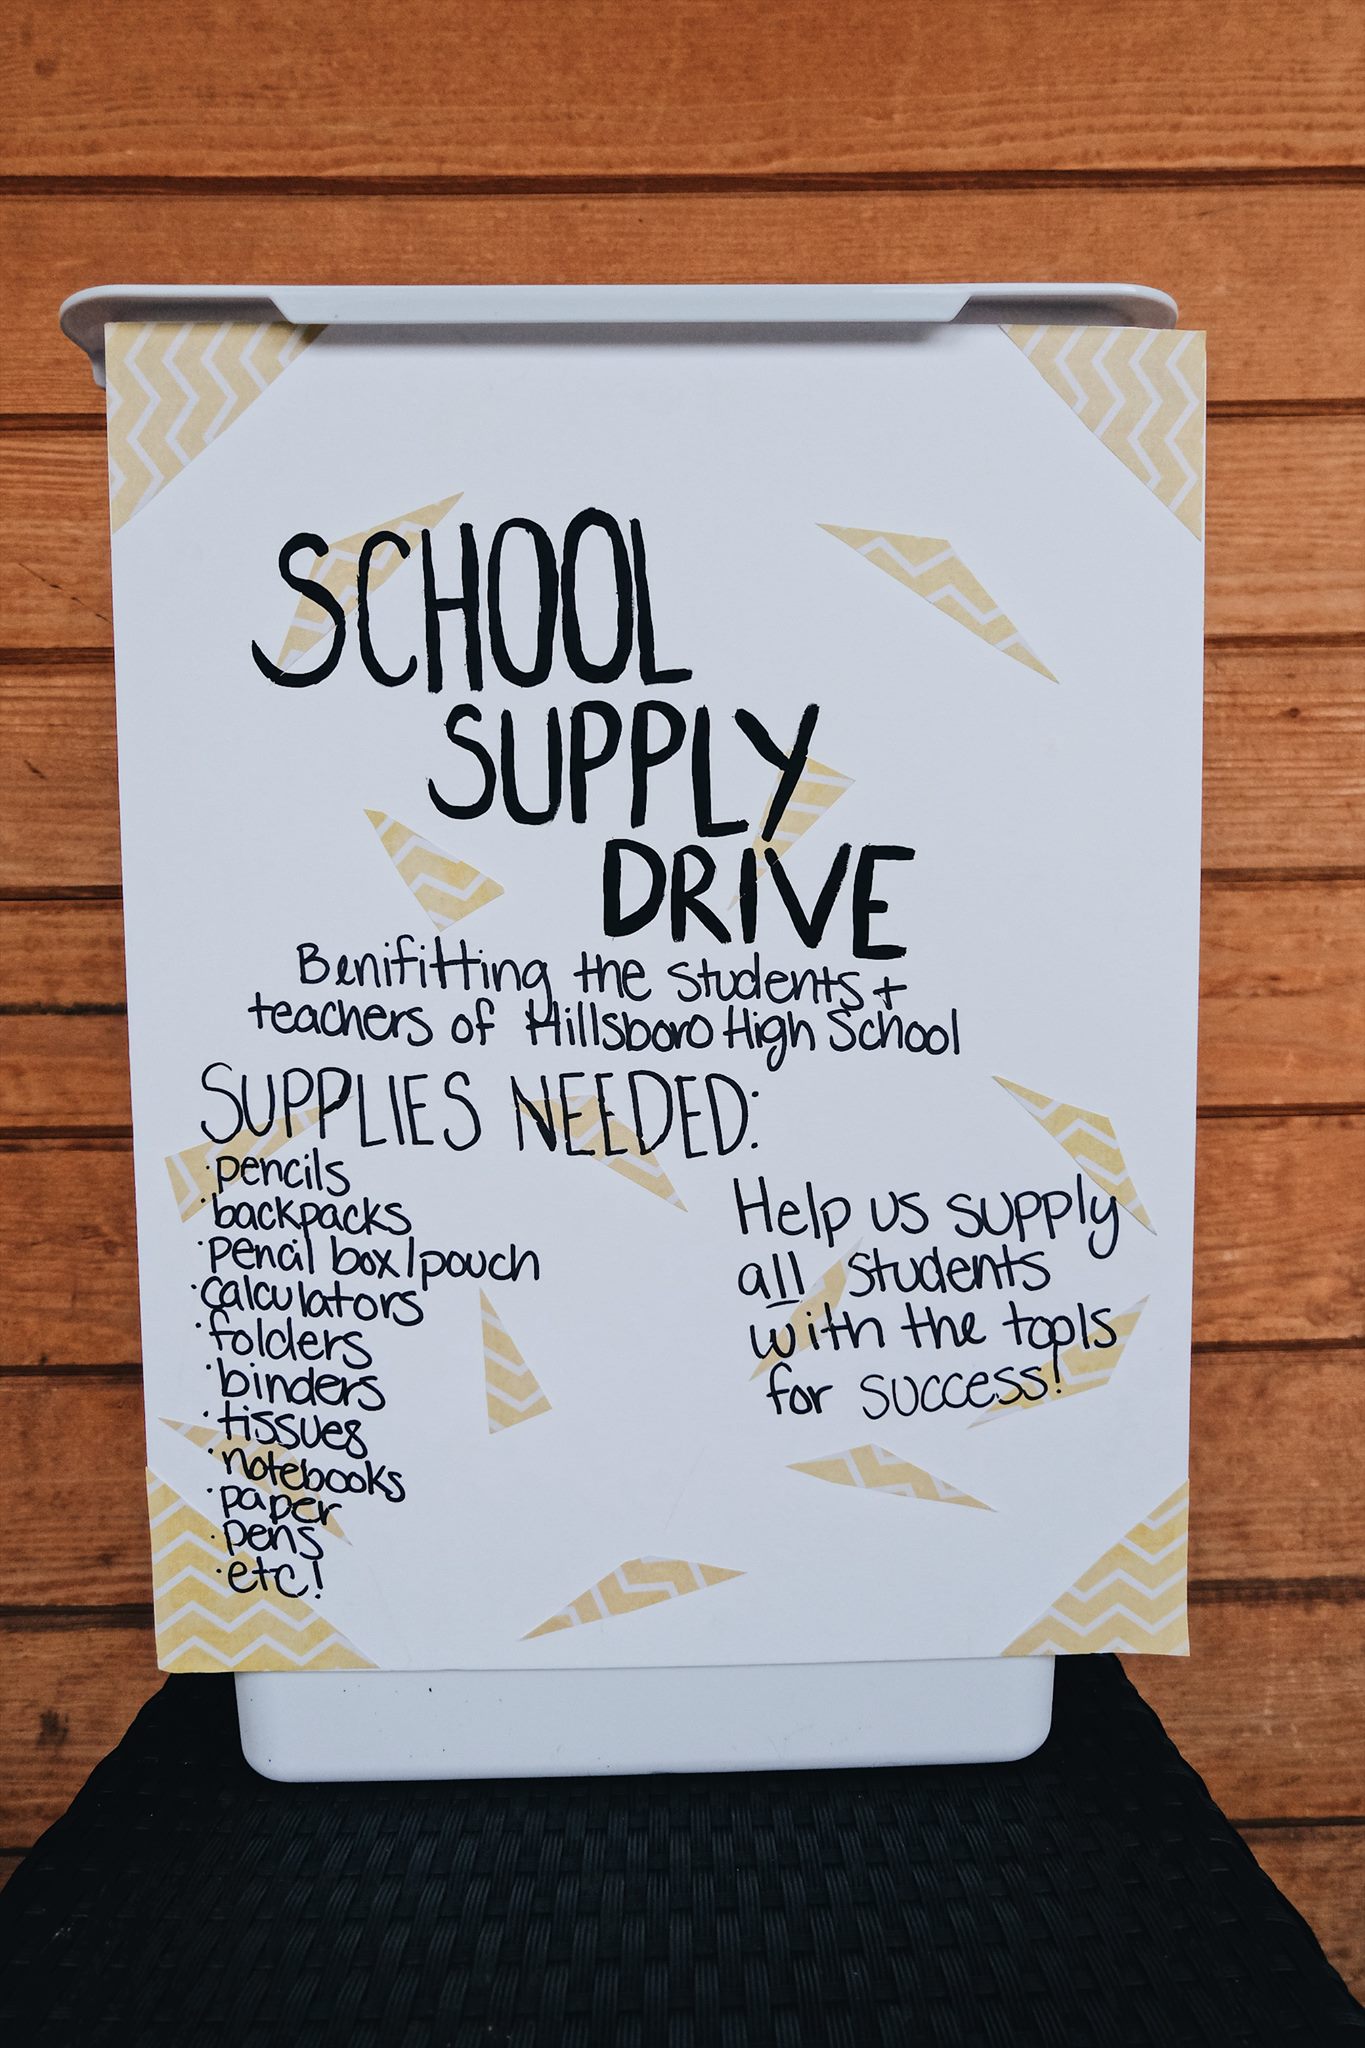 SCHOOL
SUPPLY
DRIVE
Benifitting the students +
teachers of Hillsboro High School
SUPPLIES NEEDED:
· pencils
· backpacks
· pencil box/pouch
· calculators
· folders
· binders
· tissues
· notebooks
· paper
· pens
· etc!
Help us supply
all students
with the tools
for success!